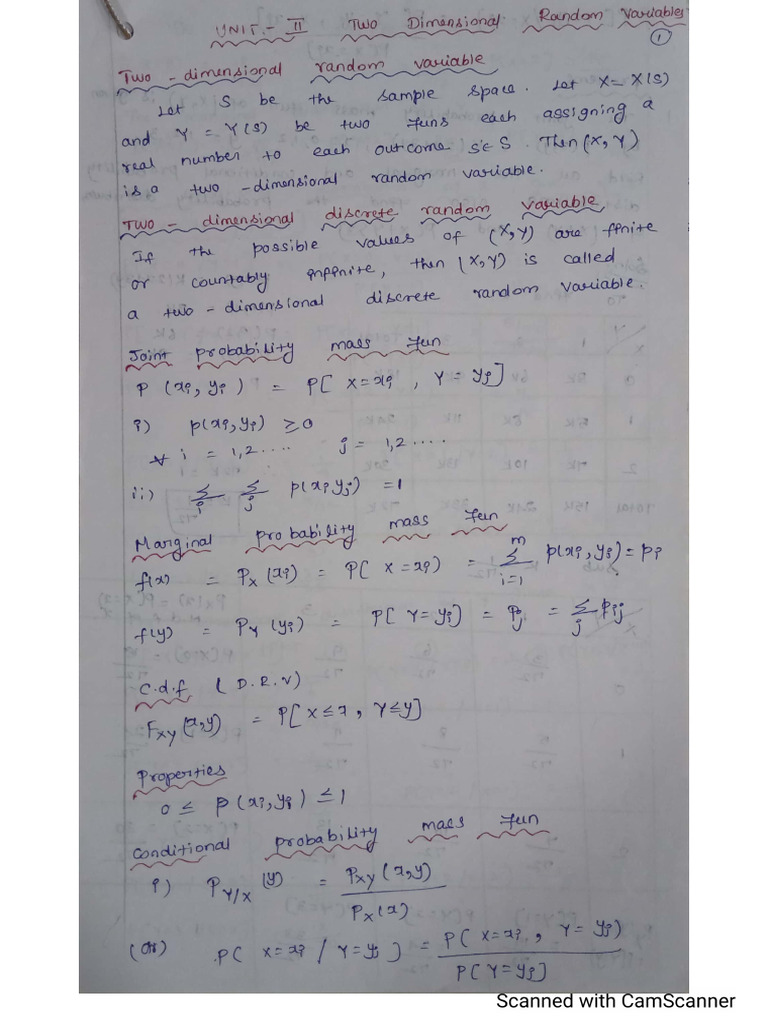 UNIT - II Two Dimensional Random Variables
1
Two - dimensional random variable
Let S be the sample space. Let X = X(S)
and Y = Y(S) be two funs each assigning a
real number to each outcome S∈S. Then (X, Y)
is a two - dimensional random variable.
Two - dimensional discrete random variable
If the possible values of (X, Y) are finite
or countably infinite, then (X, Y) is called
a two - dimensional discrete random variable.
Joint probability mass fun
P (xi, yj) = P[ X = xi , Y = yj]
i) p(xi, yj) ≥ 0
∀ i = 1,2 .... j = 1,2 ....
ii) Σi Σj p(xi yj) = 1
Marginal probability mass fun
f(x) = PX (xi) = P( X = xi) = Σ i=1 m p(xi, yj) = pi
f(y) = PY (yj) = P[ Y = yj] = Pj = Σj pij
C.d.f ( D.R.V)
FXY (x,y) = P[ X ≤ x , Y ≤ y]
Properties
0 ≤ p (xi, yj) ≤ 1
Conditional probability mass fun
i) PY/X (y) = PXY (x,y) / PX (x)
(or) P( X = xi / Y = yj ) = P( X = xi , Y = yj) / P[ Y = yj]
Scanned with CamScanner